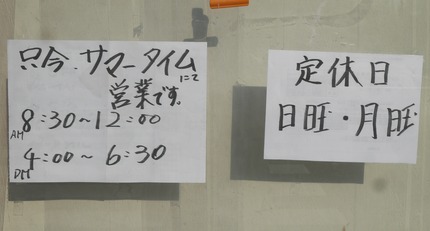 只今.サマータイム
にて
営業です.
AM 8:30~12:00
PM 4:00~6:30
定休日
日旺・月旺